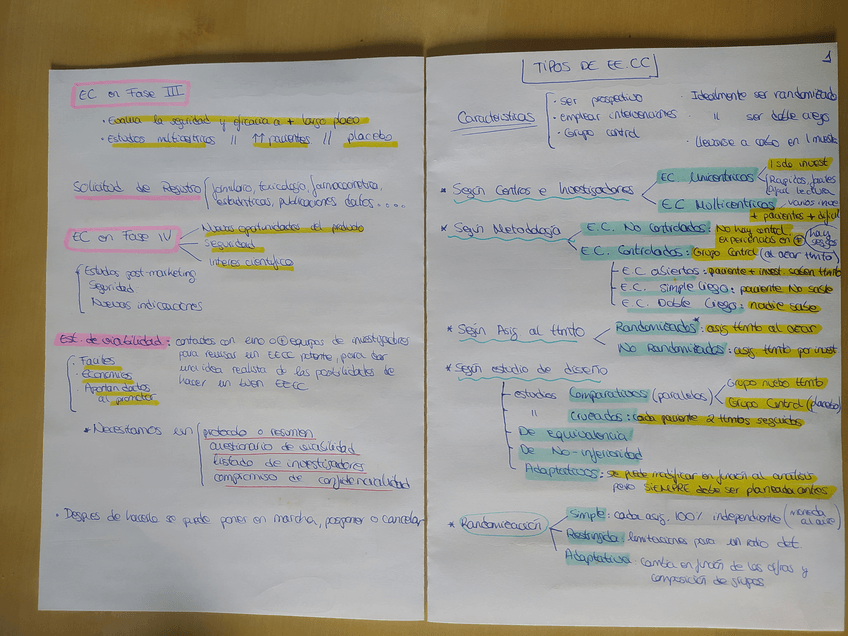 EC en Fase III
· Evalua la seguridad y eficacia a + largo plazo
· Estudios multicentricos // ↑↑ pacientes // placebo
Solicitud de Registro
formulario, toxicologia, farmacocinetica,
estadisticas, publicaciones datos....
EC en Fase IV
Nuevas oportunidades del producto
Seguridad
Interes cientifico
Estudios post-marketing
Seguridad
Nuevas indicaciones
Est. de viabilidad: contactos con uno o ⊕ equipos de investigadores
para revisar un EECC potente, para dar
una idea realista de las posibilidades de
hacer un buen EECC
· Economics
· Aportan datos
al promotor
* Necesitamos un
protocolo o resumen
cuestionario de viabilidad
listado de investigadores
compromiso de confidencialidad
· Despues de hacerlo se puede poner en marcha, posponer o cancelar
1
TIPOS DE EE.CC
Caracteristicas
· ser prospectivo
· emplear intervenciones
· Grupo control
· Idealmente ser randomizado
· " ser doble ciego
· llevarse a cabo en 1
* Según Centros e Investigadores
EC. Unicentricos
1 solo invest
Rapidos,
EC Multicentricos
varios
+ pacientes + dificil
* Según Metodología
E.C. No Controlados: No hay control.
experiencias en ⊕
(hay sesgos)
E.C. Controlados: Grupo Control (al azar ttmto)
E.C. abiertos: paciente + invest. saben ttmto
E.C. simple ciego: paciente No sabe
E.C. Doble Ciego: nadie sabe
* Según Asig. al ttmto
Randomizados*: asig ttmto al azar
No Randomizados: asig ttmto por invest
* Según estudio de diseño
estudios Comparativos (paralelos)
Grupo nuevo ttmto
Grupo Control (placebo)
" Cruzados: cada paciente 2 ttmtos seguidos
De Equivalencia
De No-inferioridad
Adaptativos: se puede modificar en función al analisis
pero SIEMPRE debe ser planeada antes
* Randomización
Simple: cada asig. 100% independiente (moneda
al aire)
Restringida: limitaciones para un ratio det.
Adaptativa: cambia en función de las cifras y
composición de grupos